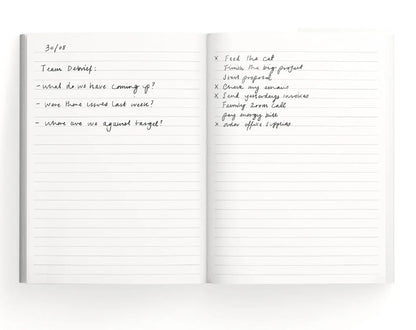 30/08
Team Debrief:
- What do we have coming up?
- Were there issues last week?
- Where are we against target?
x Feed the cat
Finish the big project
Start proposal
x Check my emails
x Send yesterdays invoices
Family zoom call
pay energy bill
x order office supplies